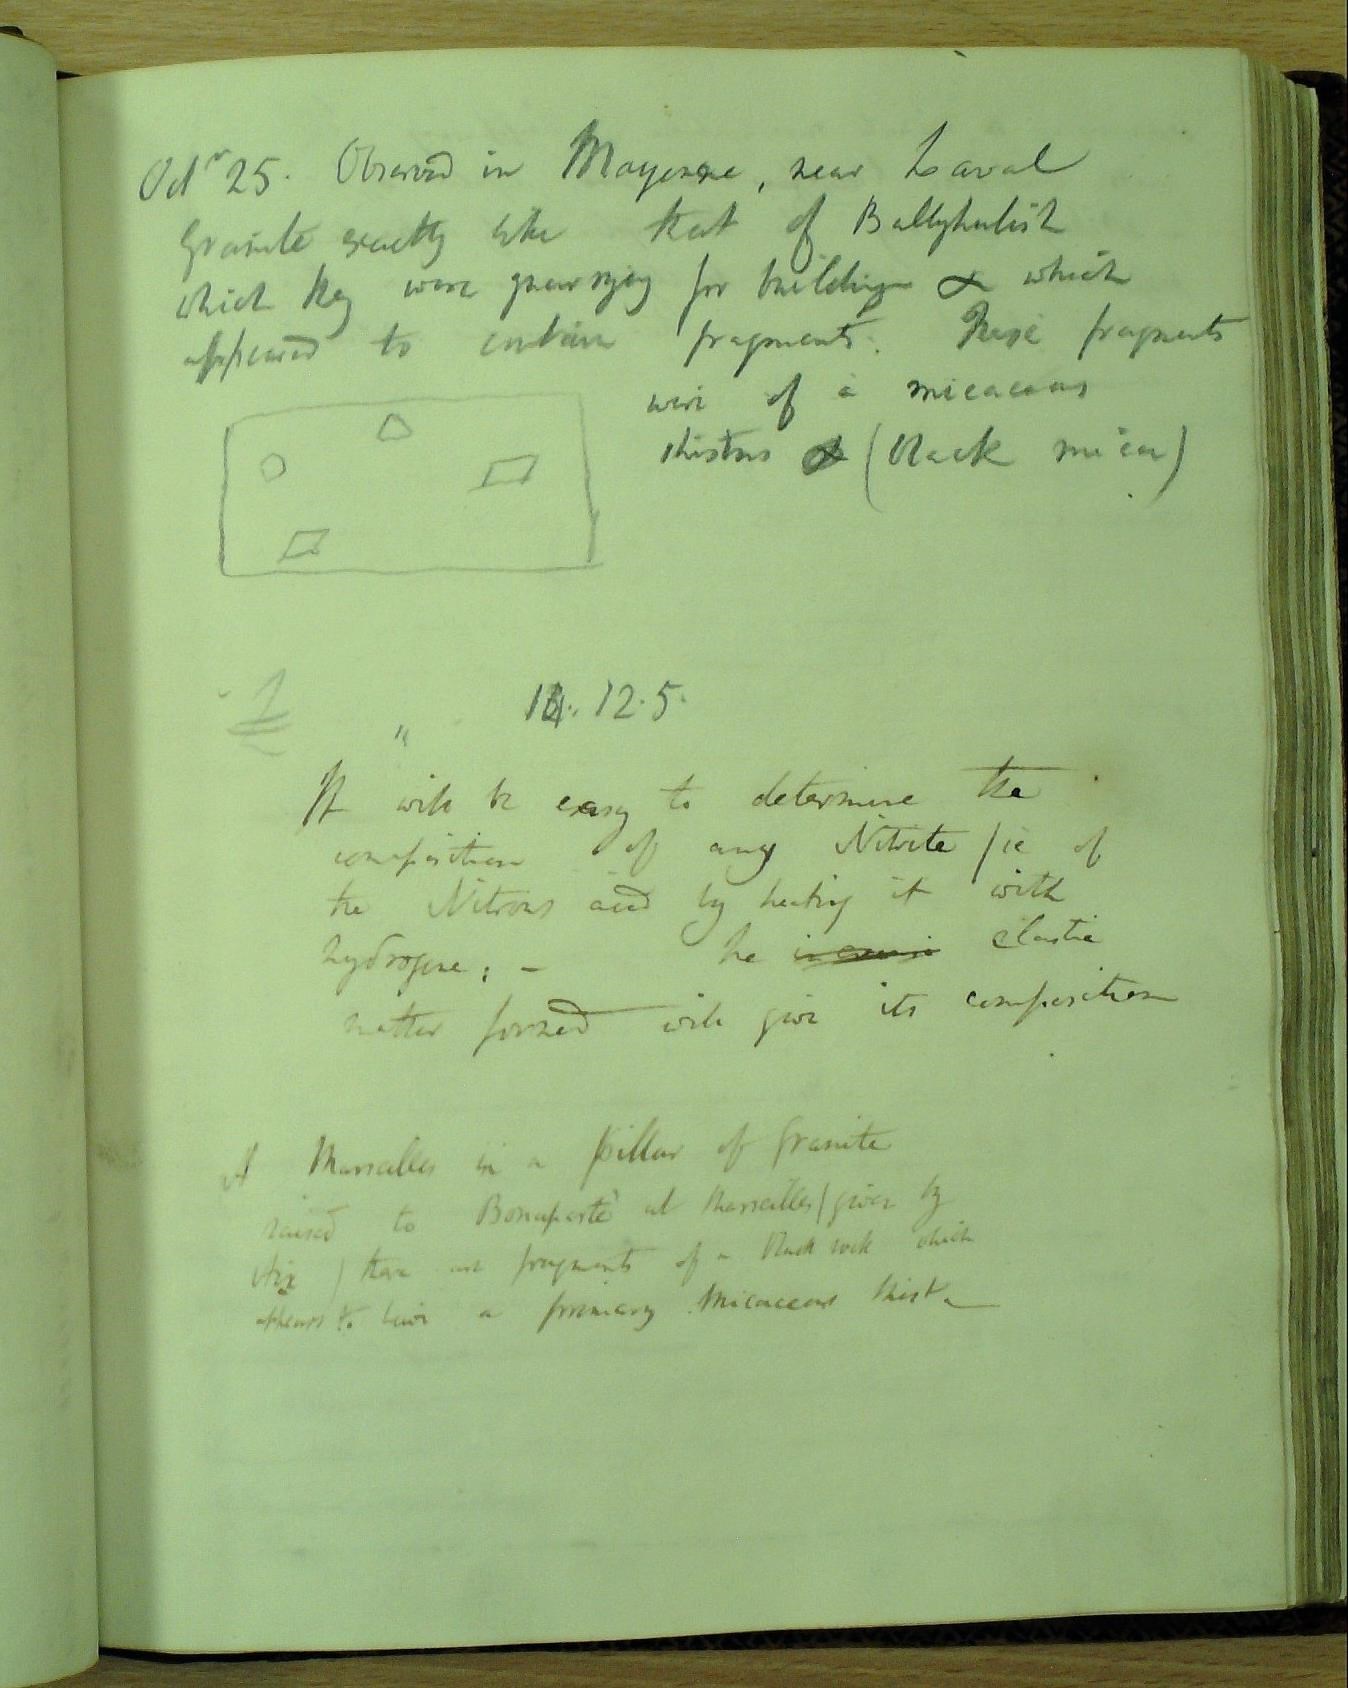 Octr 25. Observed in Mayenne, near Laval
Granite exactly like that of Ballyhulish
which they were quarrying for building & which
appeared to contain fragments. These fragments
were of a micaceous
shistus & (black mica)
1
" 14. 12.5.
It will be easy to determine the
composition of any Nitrite / ie of
the Nitrous acid by heating it with
hydrogene; - he elastic
matter formed will give its composition
At Marseilles in a pillar of Granite
raised to Bonaparte at Marseilles / given by
Aix ) there are fragments of a black rock which
appears to have a primary Micaceous shist